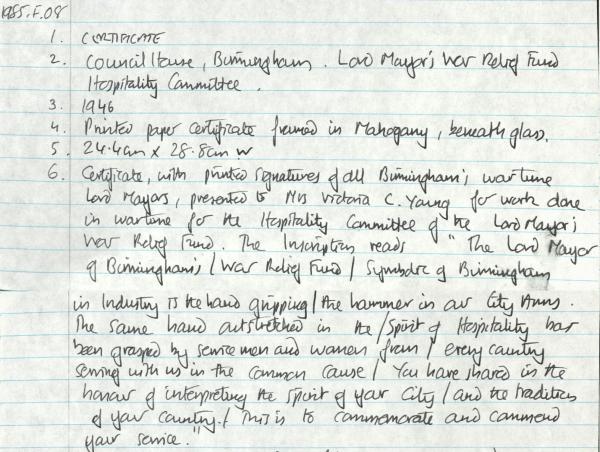 1985.F.08
1. CERTIFICATE
2. Council House, Birmingham. Lord Mayor's War Relief Fund
Hospitality Committee.
3. 1946
4. Printed paper certificate framed in Mahogany, beneath glass.
5. 24.4cm x 28.8cm w
6. Certificate, with printed signatures of all Birmingham's wartime
Lord Mayors, presented to Mrs Victoria C. Young for work done
in wartime for the Hospitality Committee of the Lord Mayor's
War Relief Fund. The Inscription reads "The Lord Mayor
of Birmingham's / War Relief Fund / Symbolic of Birmingham
in Industry is the hand gripping / the hammer in our City Arms.
The same hand outstretched in the / Spirit of Hospitality has
been grasped by service men and women from / every country
serving with us in the common cause / You have shared in the
honour of interpreting the spirit of your City / and the tradition
of your country. / This is to commemorate and commend
your service."